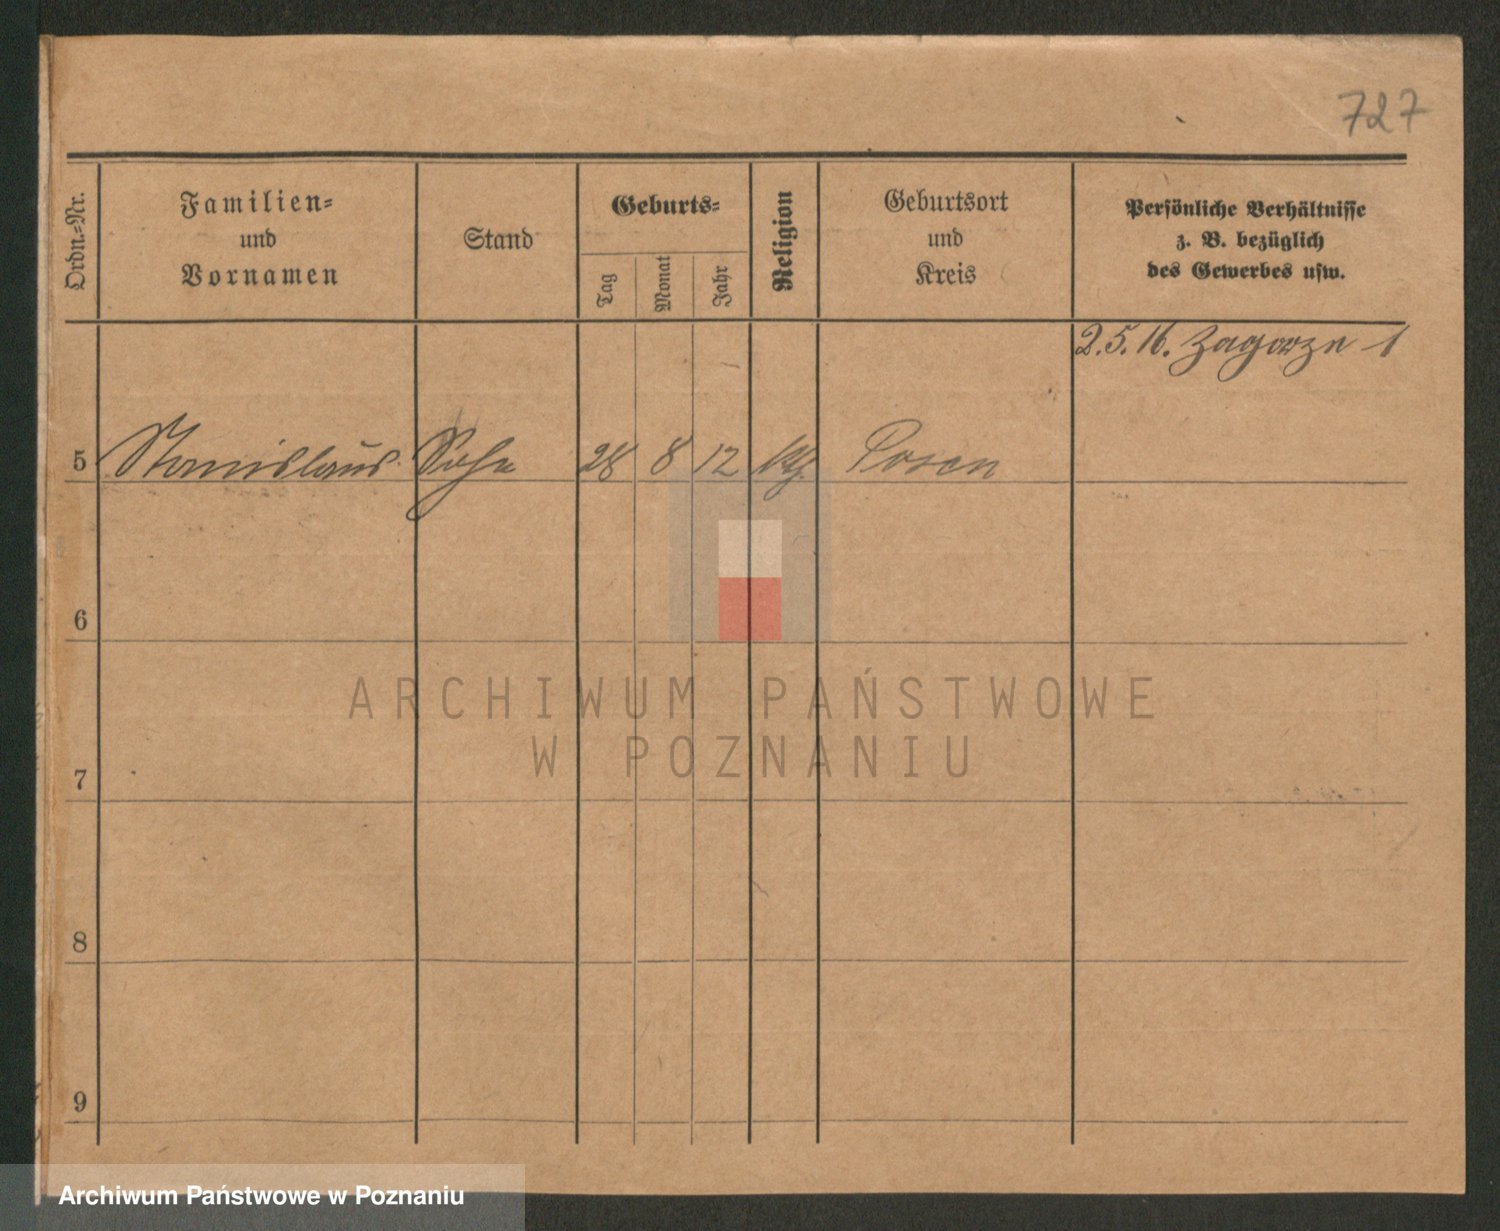 727
Ordn.=Nr.
Familien=
und
Vornamen
Stand
Geburts=
Tag
Monat
Jahr
Religion
Geburtsort
und
Kreis
Persönliche Verhältnisse
z. B. bezüglich
des Gewerbes usw.
2.5.16. Zagorze 1
5 Stanislaus Sohn 28 8 12 kth. Posen
6
7
8
9
ARCHIWUM PAŃSTWOWE
W POZNANIU
Archiwum Państwowe w Poznaniu